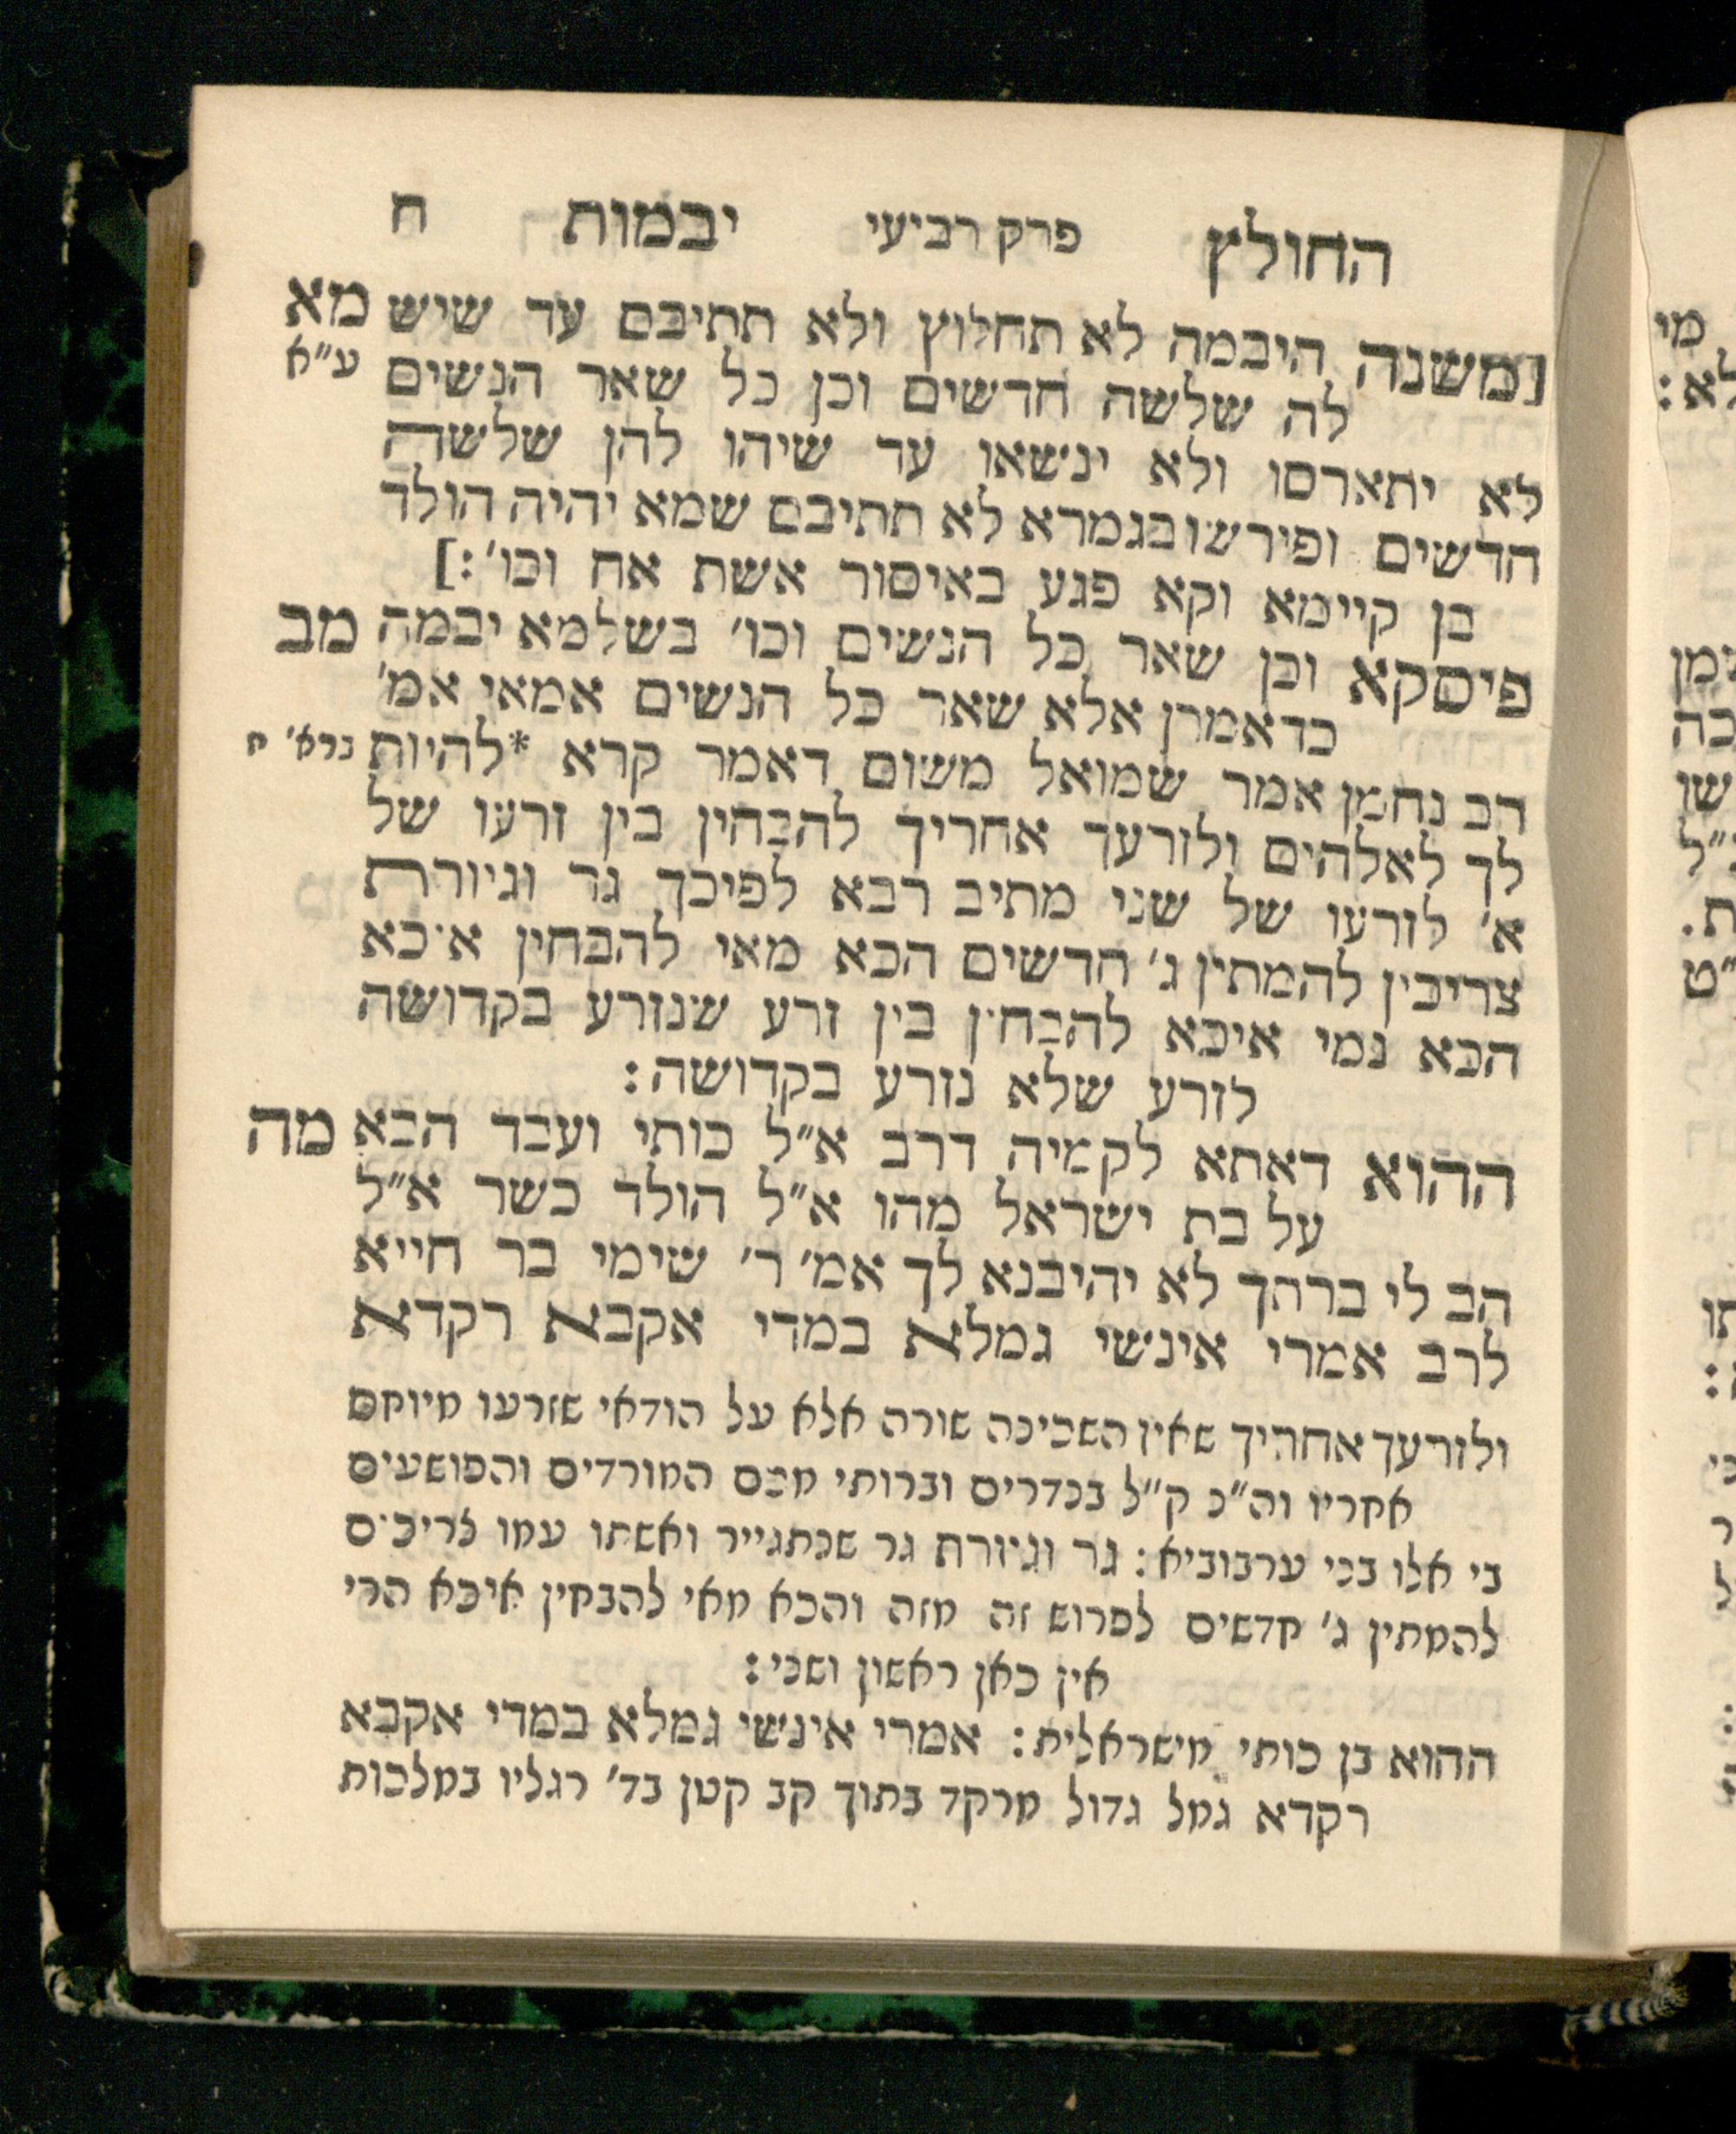 החולץ פרק רביעי יבמות ח
[משנה היבמה לא תחלוץ ולא תתיבם עד שיש מא
לה שלשה חדשים וכן כל שאר הנשים ע״א
לא יתארסו ולא ינשאו עד שיהו להן שלשה
חדשים ופירשו בגמרא לא תתיבם שמא יהיה הולד
בן קיימא וקא פגע באיסור אשת אח וכו׳:]
פיסקא וכן שאר כל הנשים וכו׳ בשלמא יבמה מב
כדאמרן אלא שאר כל הנשים אמאי אמ׳
רב נחמן אמר שמואל משום דאמר קרא *להיות ברא׳ ח
לך לאלהים ולזרעך אחריך להבחין בין זרעו של
א׳ לזרעו של שני מתיב רבא לפיכך גר וגיורת
צריכין להמתין ג׳ חדשים הכא מאי להבחין איכא
הכא נמי איכא להבחין בין זרע שנזרע בקדושה
לזרע שלא נזרע בקדושה:
ההוא דאתא לקמיה דרב א״ל כותי ועבד הבא מה
על בת ישראל מהו א״ל הולד כשר א״ל
הב לי ברתך לא יהיבנא לך אמ׳ ר׳ שימי בר חייא
לרב אמרי אינשי גמלא במדי אקבא רקדא
ולזרעך אחריך שאין השכינה שורה אלא על הודאי שזרעו מיוחס
אחריו וה״נ ק״ל בנדרים וברותי מכם המורדים והפושעים
בי אלו בני ערבוביא: גר וגיורת גר שנתגייר ואשתו עמו צריכים
להמתין ג׳ חדשים לפרוש זה מזה והכא מאי להבחין איכא הרי
אין כאן ראשון ושני:
ההוא בן כותי מישראלית: אמרי אינשי גמלא במדי אקבא
רקדא גמל גדול מרקד בתוך קב קטן בד׳ רגליו במלכות